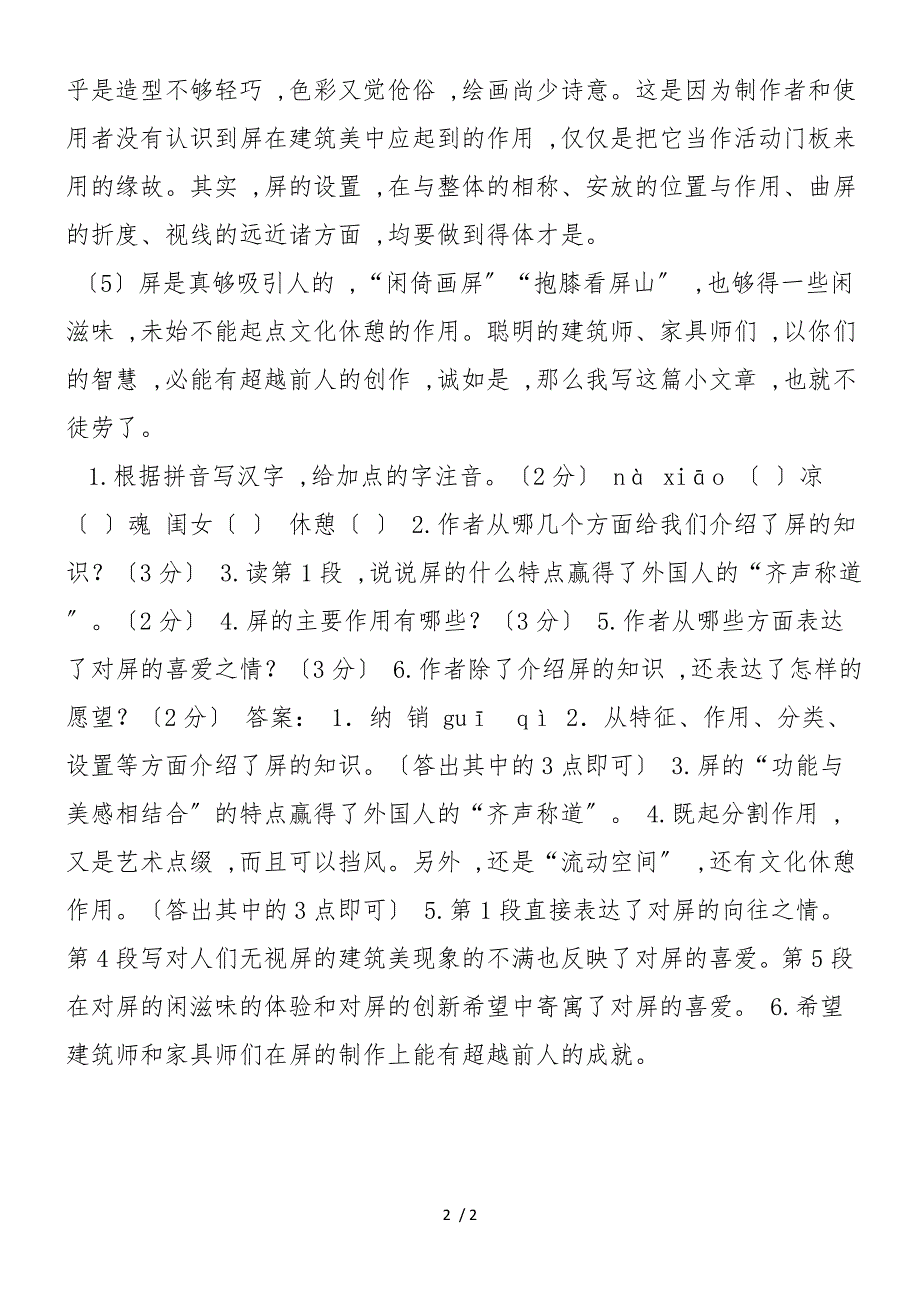 乎是造型不够轻巧 ,色彩又觉伧俗 ,绘画尚少诗意。这是因为制作者和使
用者没有认识到屏在建筑美中应起到的作用 ,仅仅是把它当作活动门板来
用的缘故。其实 ,屏的设置 ,在与整体的相称、安放的位置与作用、曲屏
的折度、视线的远近诸方面 ,均要做到得体才是。
〔5〕屏是真够吸引人的 ,“闲倚画屏〞“抱膝看屏山〞 ,也够得一些闲
滋味 ,未始不能起点文化休憩的作用。聪明的建筑师、家具师们 ,以你们
的智慧 ,必能有超越前人的创作 ,诚如是 ,那么我写这篇小文章 ,也就不
徒劳了。
1.根据拼音写汉字 ,给加点的字注音。〔2分〕 nà xiāo 〔 〕凉
〔 〕魂 闺女〔 〕 休憩〔 〕 2.作者从哪几个方面给我们介绍了屏的知
识?〔3分〕 3.读第1段 ,说说屏的什么特点赢得了外国人的“齐声称道
〞。〔2分〕 4.屏的主要作用有哪些?〔3分〕 5.作者从哪些方面表达
了对屏的喜爱之情?〔3分〕 6.作者除了介绍屏的知识 ,还表达了怎样的
愿望?〔2分〕 答案: 1．纳 销 guī qì 2．从特征、作用、分类、
设置等方面介绍了屏的知识。〔答出其中的3点即可〕 3.屏的“功能与
美感相结合〞的特点赢得了外国人的“齐声称道〞。 4.既起分割作用 ,
又是艺术点缀 ,而且可以挡风。另外 ,还是“流动空间〞 ,还有文化休憩
作用。〔答出其中的3点即可〕 5.第1段直接表达了对屏的向往之情。
第4段写对人们无视屏的建筑美现象的不满也反映了对屏的喜爱。第5段
在对屏的闲滋味的体验和对屏的创新希望中寄寓了对屏的喜爱。 6.希望
建筑师和家具师们在屏的制作上能有超越前人的成就。
2 / 2